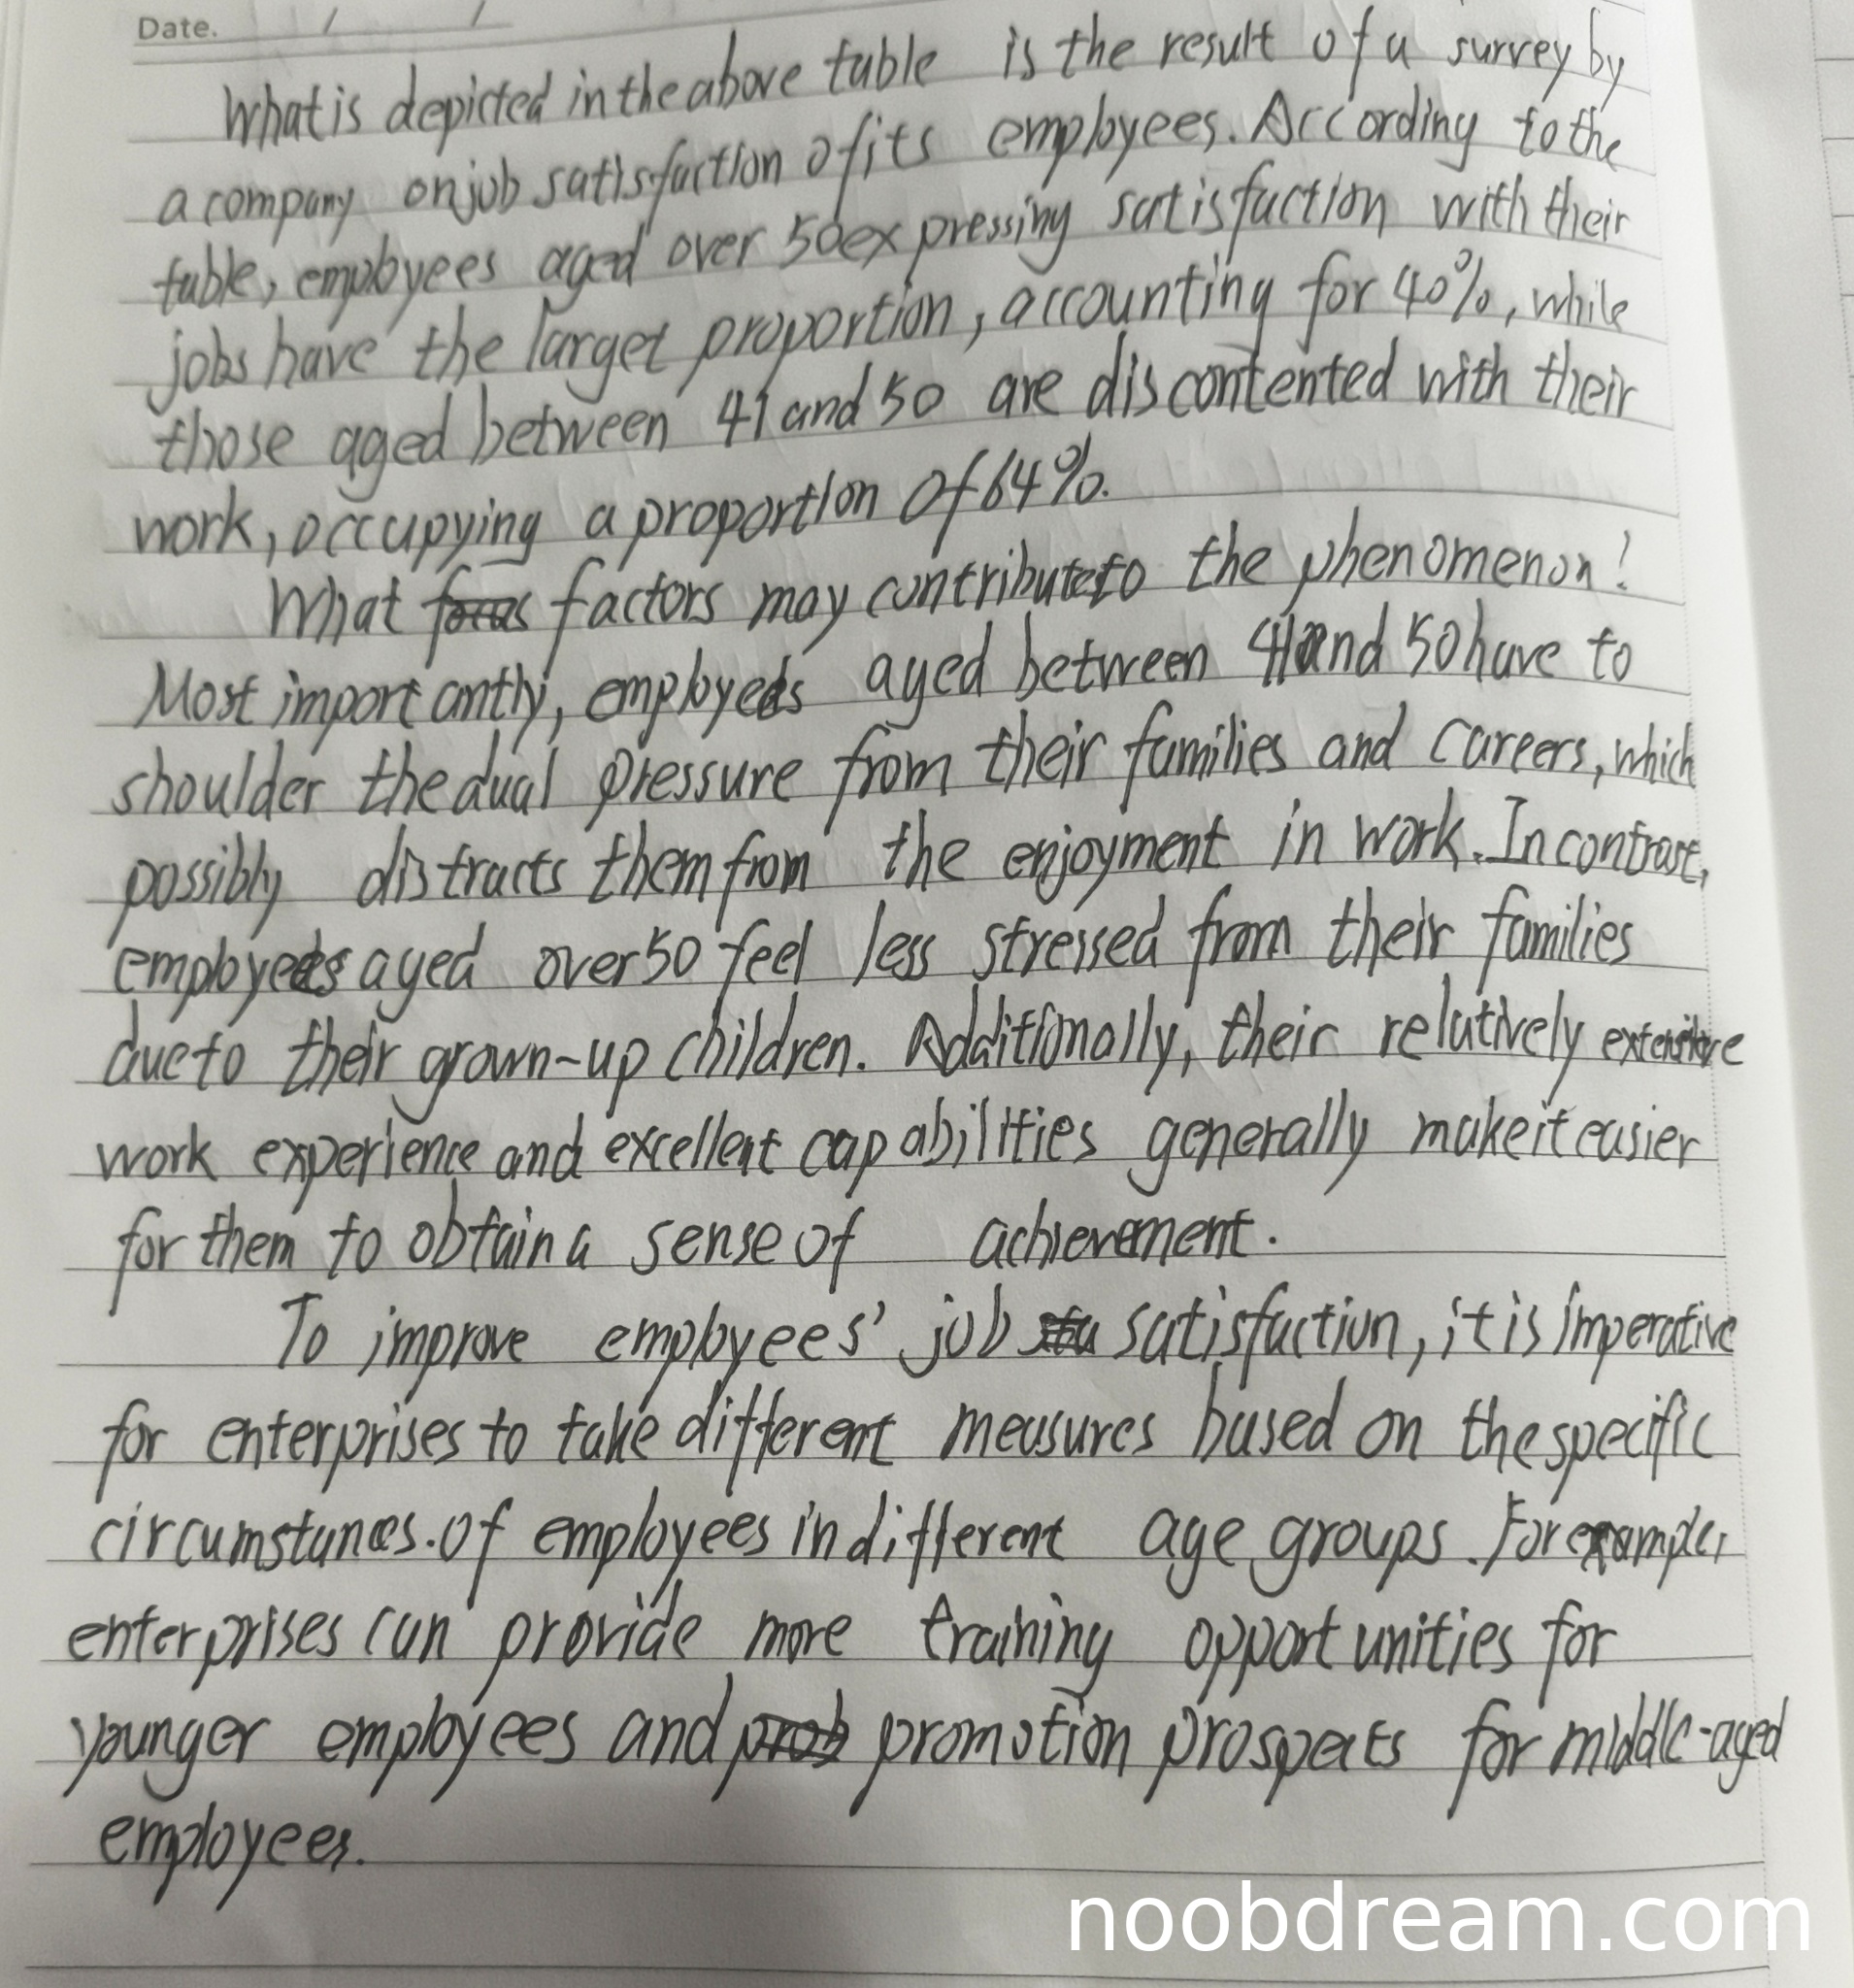 Date. / /
What is depicted in the above table is the result of a survey by
a company on job satisfaction of its employees. According to the
table, employees aged over 50 expressing satisfaction with their
jobs have the larget proportion, accounting for 40%, while
those aged between 41 and 50 are discontented with their
work, occupying a proportion of 64%.
What factors may contribute to the phenomenon?
Most importantly, employees aged between 41 and 50 have to
shoulder the dual pressure from their families and careers, which
possibly distracts them from the enjoyment in work. In contrast,
employees aged over 50 feel less stressed from their families
due to their grown-up children. Additionally, their relatively extensive
work experience and excellent capabilities generally make it easier
for them to obtain a sense of achievement.
To improve employees' job satisfaction, it is imperative
for enterprises to take different measures based on the specific
circumstances. of employees in different age groups. For example,
enterprises can provide more training opportunities for
younger employees and promotion prospects for middle-aged
employees.
noobdream.com